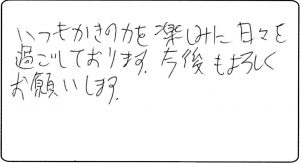 いつもかきの力を楽しみに日々を
過ごしております。今後もよろしく
お願いします。